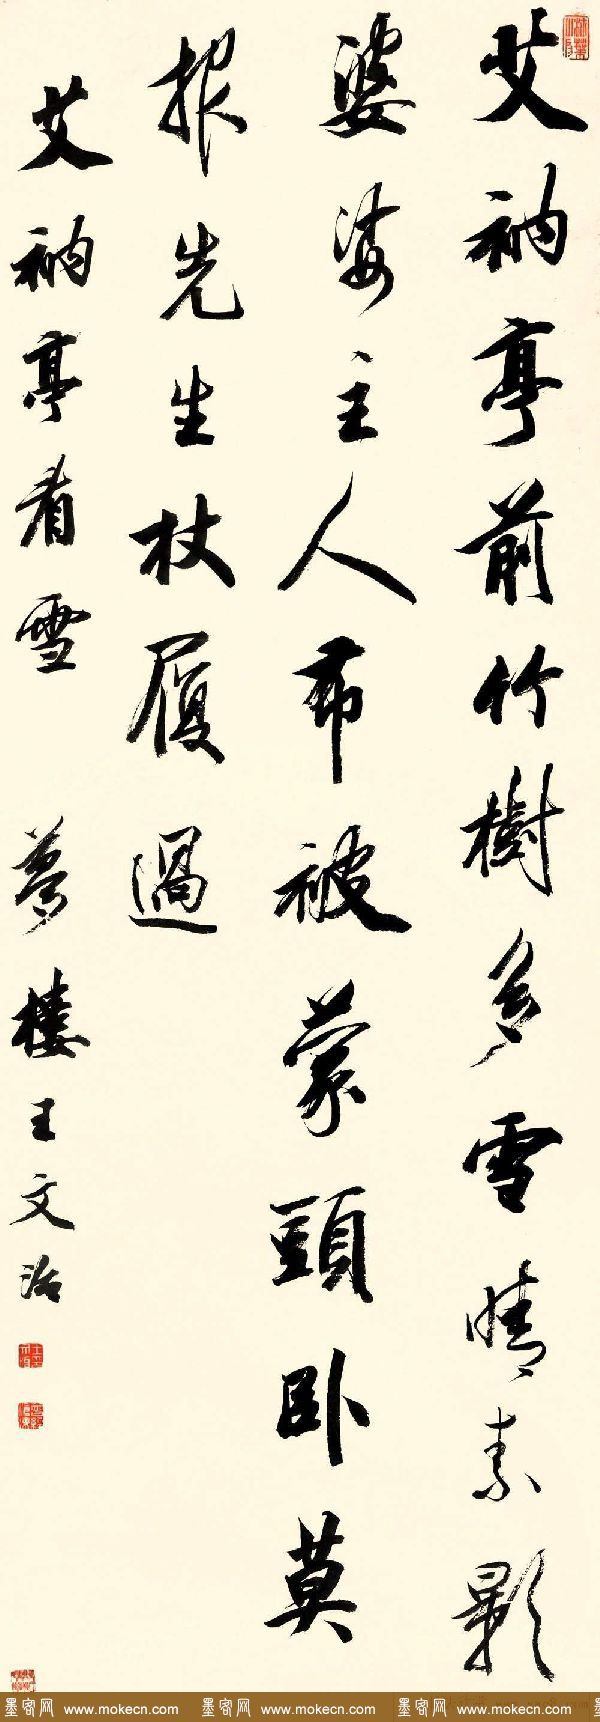 艾衲亭前竹樹多雪晴素影
婆娑主人布被蒙頭卧莫
报先生杖履過
艾衲亭看雪 夢樓王文治
墨客网 www.mokecn.com 墨客网 www.mokecn.com 墨客网 www.mokecn.com